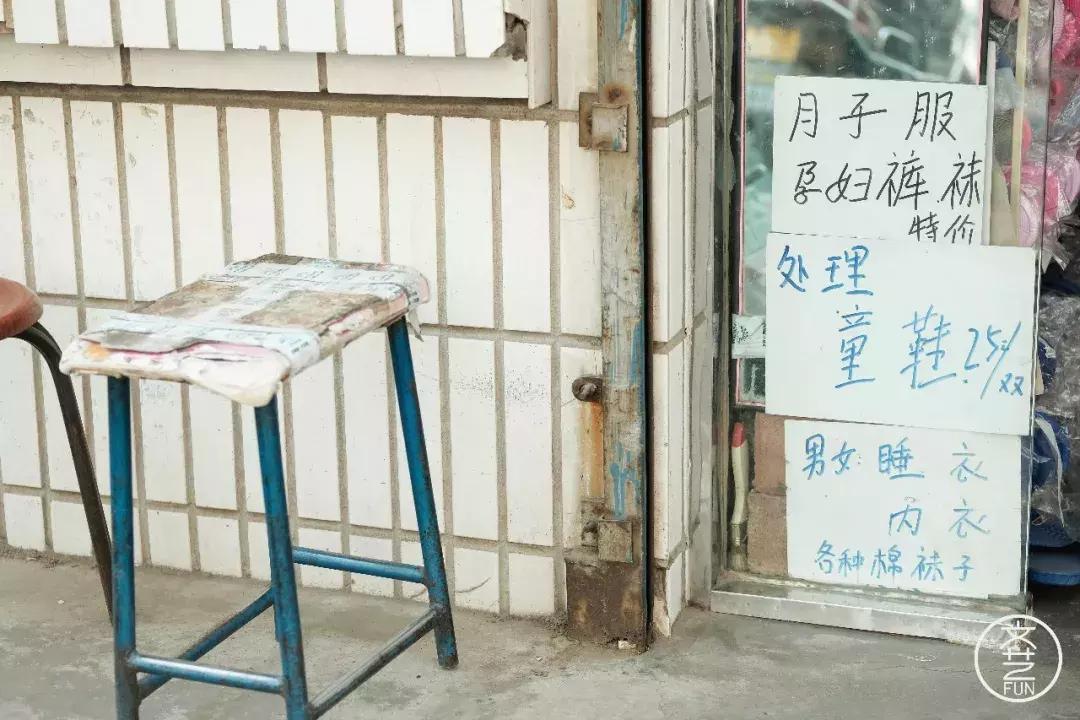 月子服
孕妇裤.袜
特价
处理
童鞋.25/双
男女睡衣
内衣
各种棉袜子
文艺
FUN